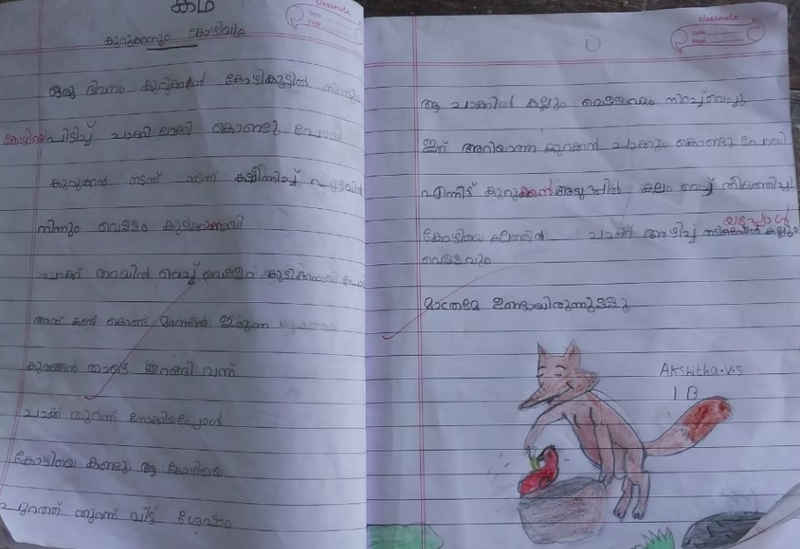 കഥ
കുറുക്കനും കോഴിയും
ഒരു ദിവസം കുറുക്കൻ കോഴികൂട്ടിൽ നിന്നും
കോഴിയെ പിടിച്ച് ചാക്കി ലാക്കി കൊണ്ടു പോയി
കുറുക്കൻ നടന്ന് നടന്ന് ക്ഷീണിച്ച്
നിന്നും വെള്ളം കുടിക്കാനായി
ചാക്ക് തറയിൽ വെച്ച് വെള്ളം കുടിക്കാനായി പോയി
അത് കണ്ട് കൊണ്ട് മരത്തിൽ ഇരുന്ന
കുരങ്ങൻ താഴെ ഇറങ്ങി വന്ന്
ചാക്ക് തുറന്ന് നോക്കിയപ്പോൾ
കോഴിയെ കണ്ടു ആ കോഴിയെ
പുറത്ത് തുറന്ന് വിട്ട് ശേഷം
classmate
Date
Page
ആ ചാക്കിൽ കല്ലും വെള്ളവും നിറച്ച് വെച്ചു
ഇത് അറിയാത്ത കുറുക്കൻ ചാക്കും കൊണ്ടു പോയി
എന്നിട്ട് കുറുക്കൻ അടുപ്പിൽ കലം വെച്ച് തീ കത്തിച്ചു
കോഴിയെ കലത്തിൽ ചാക്ക് അഴിച്ച് തട്ടിയപ്പോൾ കല്ലും
വെള്ളവും
മാത്രമേ ഉണ്ടായിരുന്നുള്ളു
Akshitha.v.s
1 B